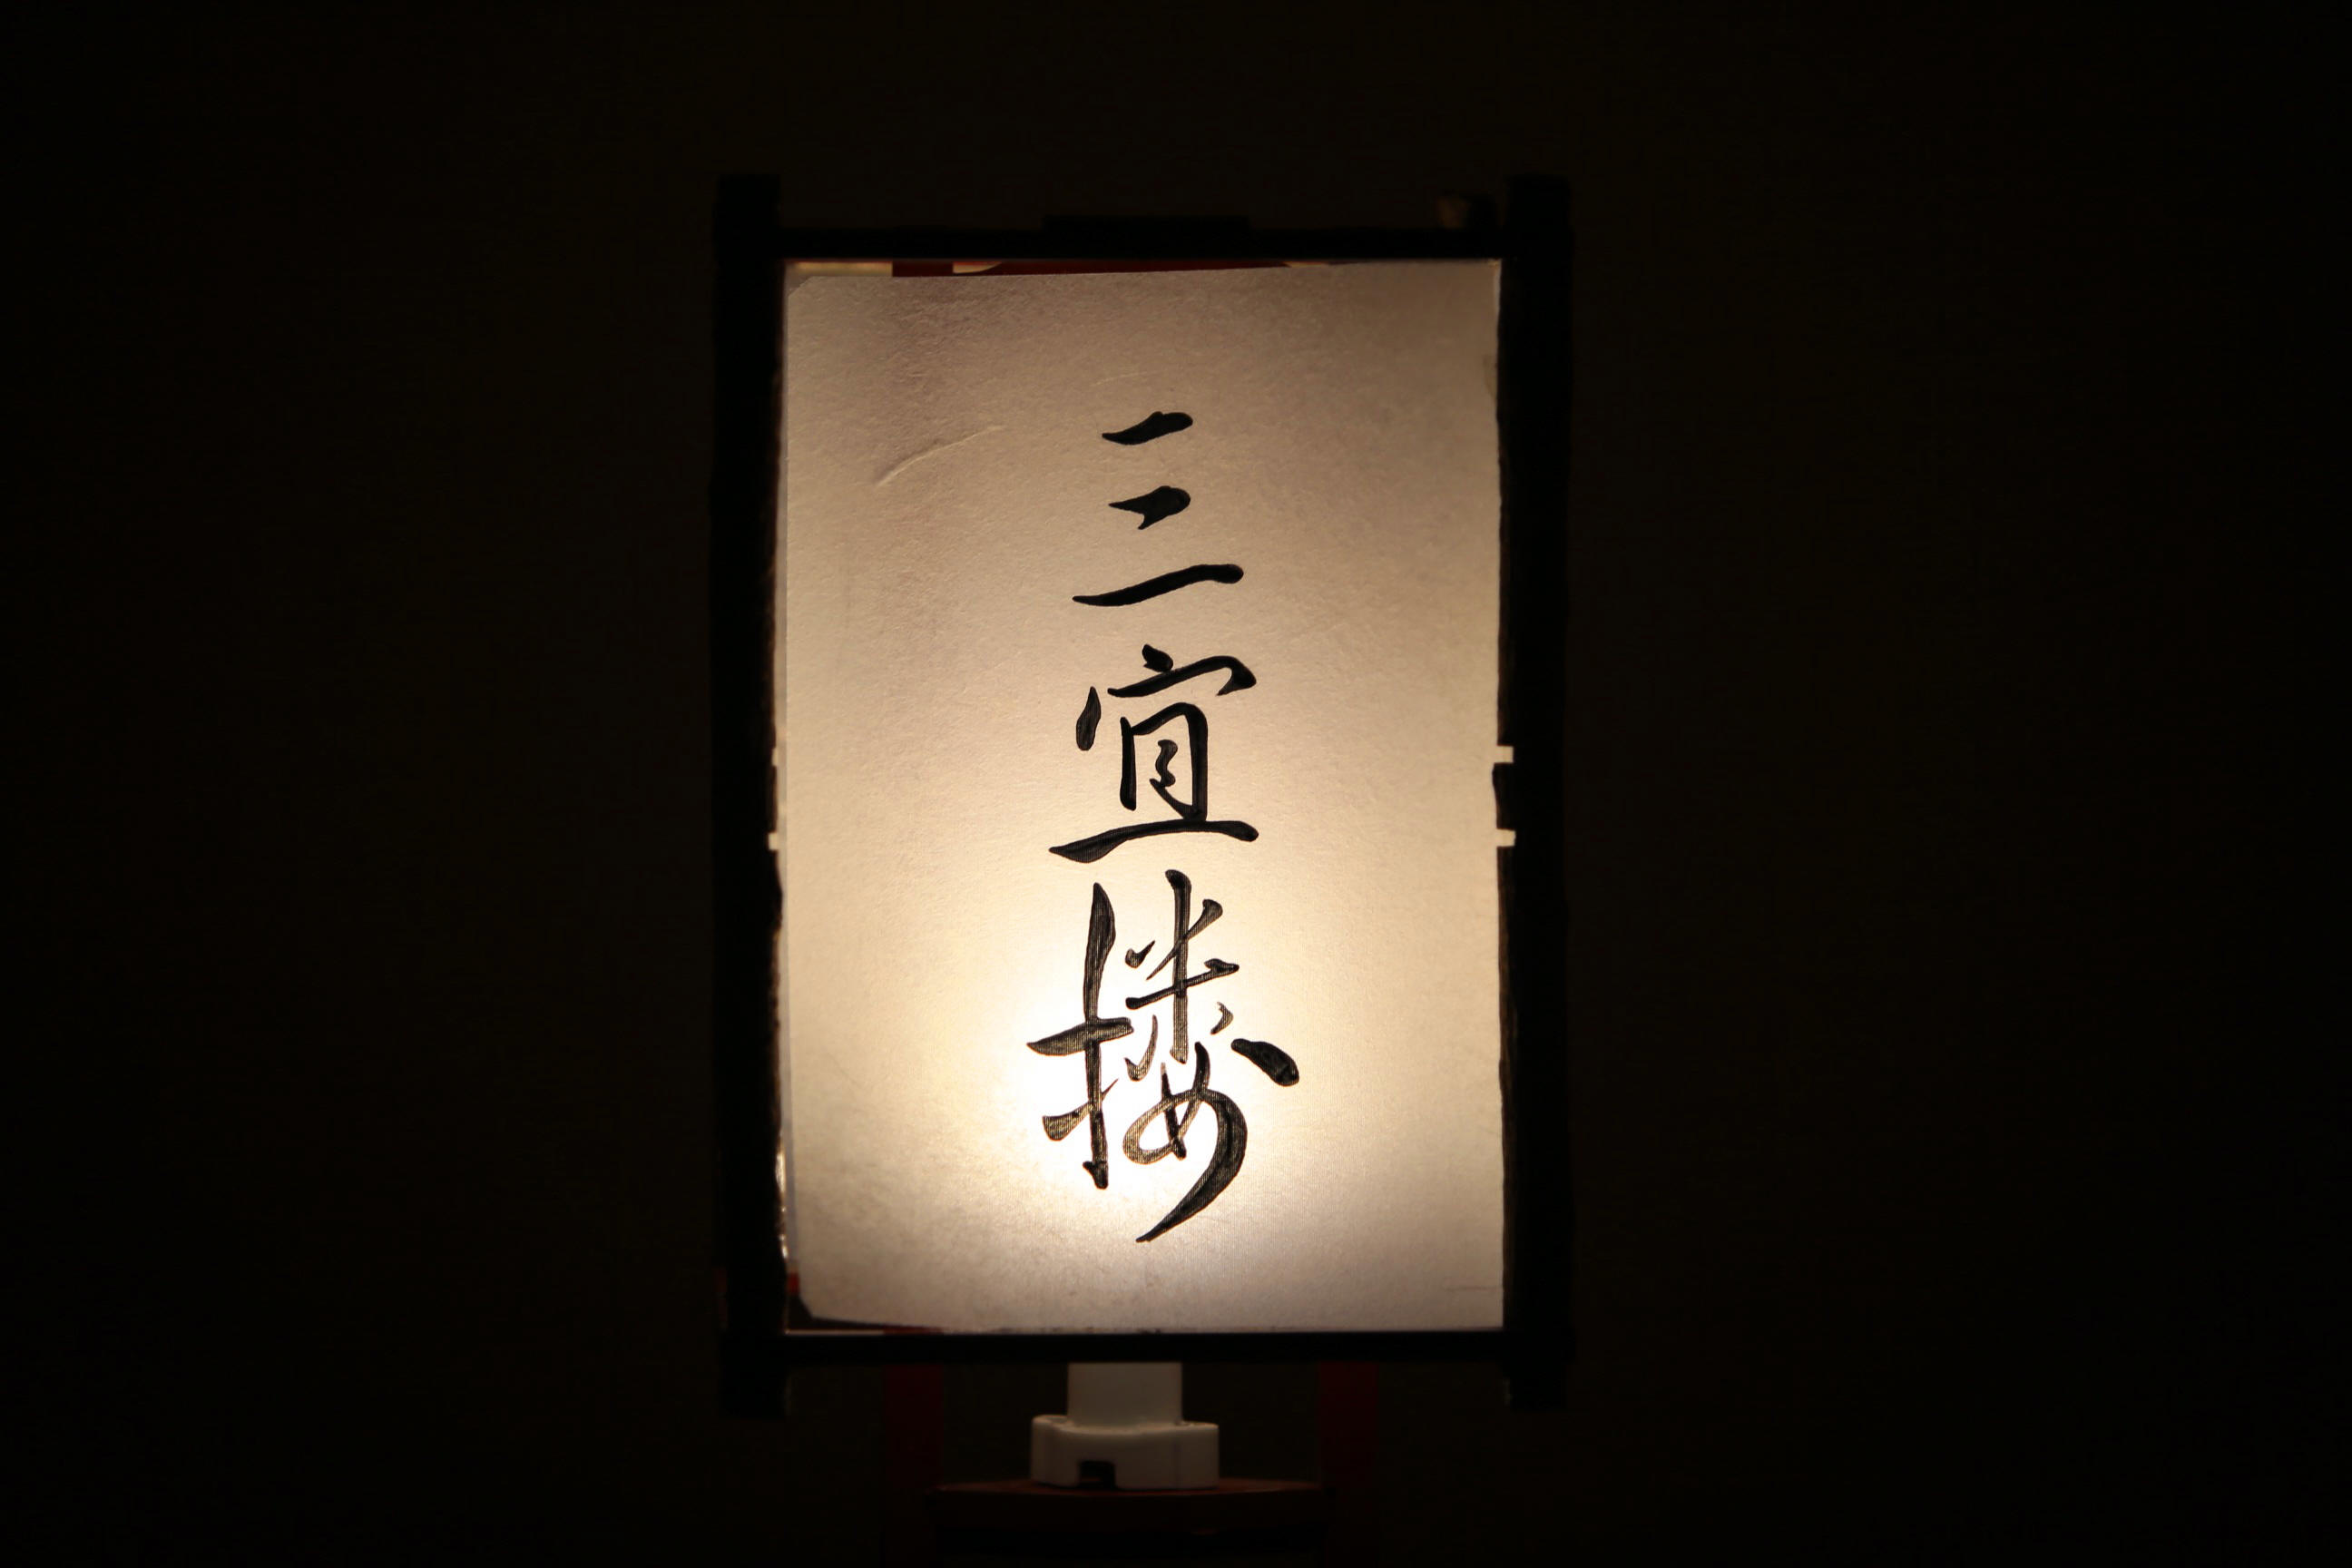 三宜楼